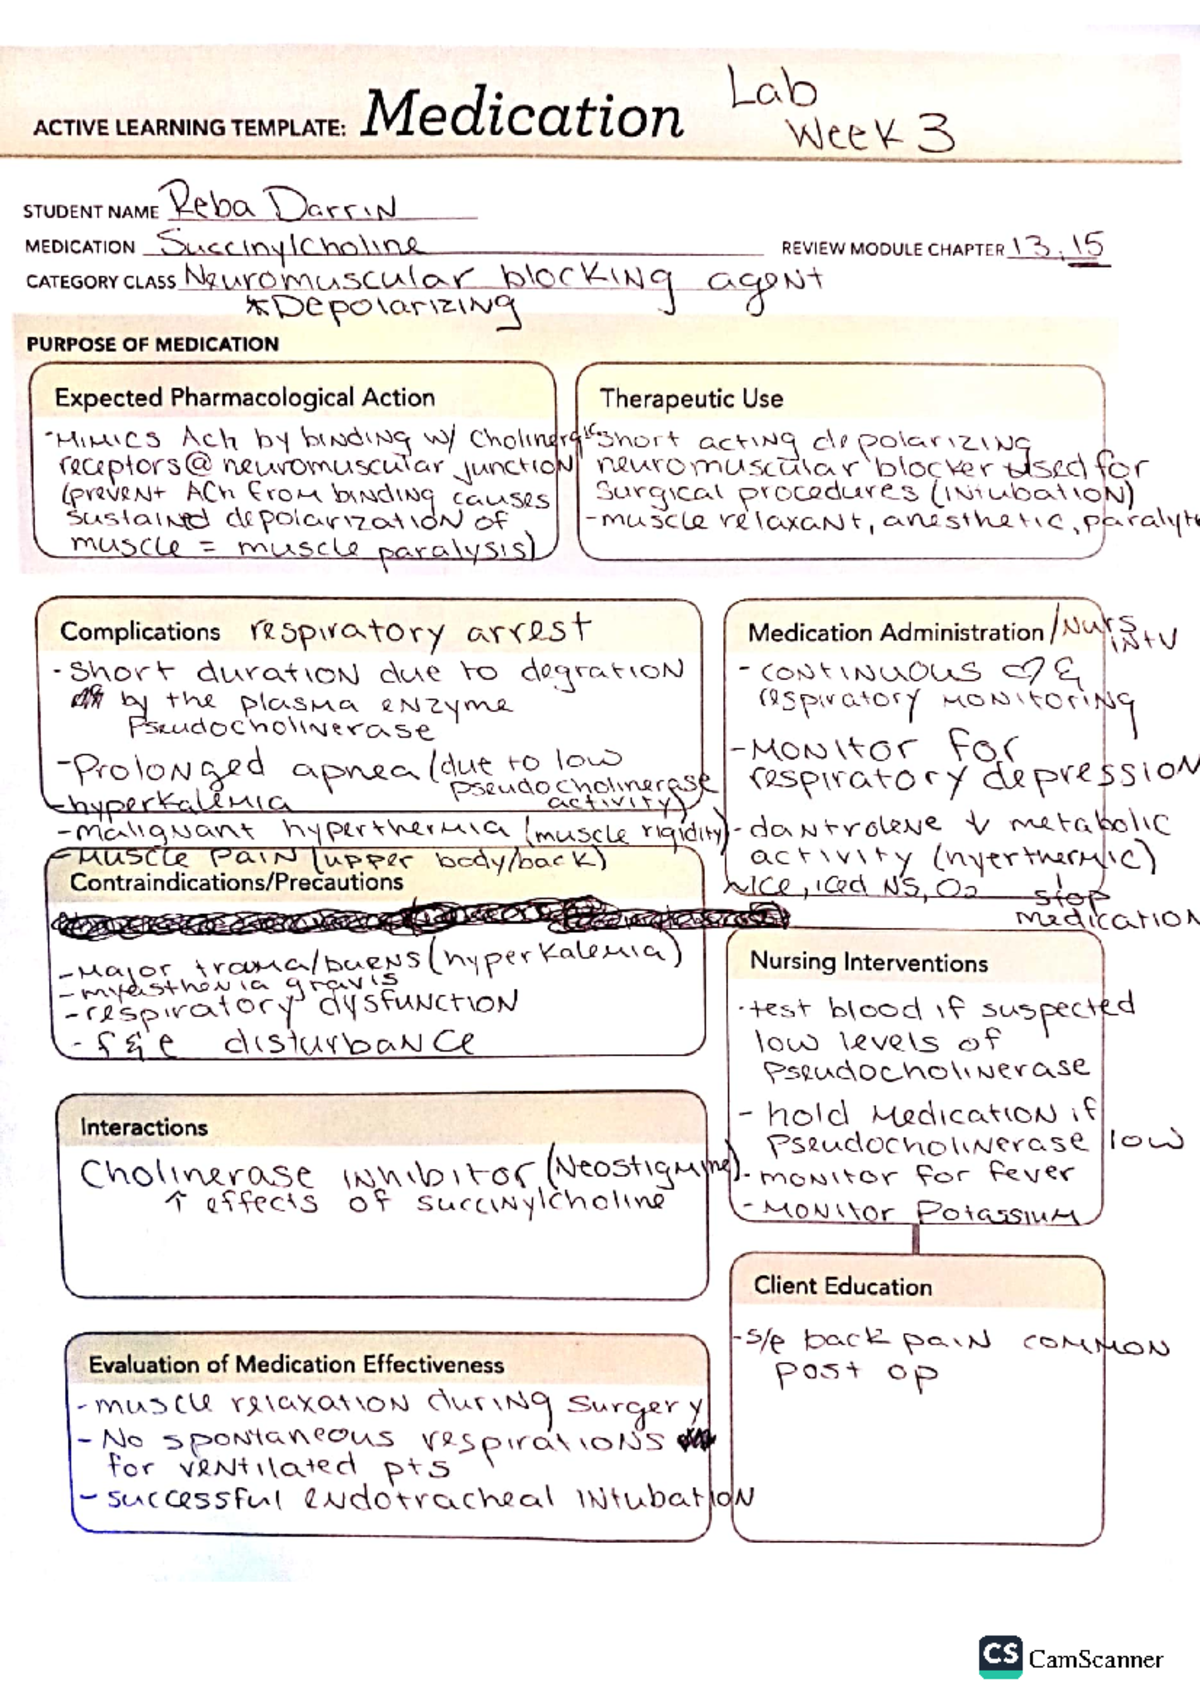 ACTIVE LEARNING TEMPLATE: Medication Lab
Week 3
STUDENT NAME Reba Darrin
MEDICATION Succinylcholine REVIEW MODULE CHAPTER 13, 15
CATEGORY CLASS Neuromuscular blocking agent
*Depolarizing
PURPOSE OF MEDICATION
Expected Pharmacological Action
-Mimics Ach by binding w/ cholinergic
receptors @ neuromuscular junction
(prevent ACh from binding causes
sustained depolarization of
muscle = muscle paralysis)
Therapeutic Use
short acting depolarizing
neuromuscular blocker used for
surgical procedures (intubation)
-muscle relaxant, anesthetic, paralyt
Complications respiratory arrest
-short duration due to degration
by the plasma enzyme
Pseudocholinerase
-Prolonged apnea (due to low
pseudocholinerase
activity)
-hyperkalemia
-malignant hyperthermia (muscle rigidity)
-muscle pain (upper body/back)
Medication Administration /Nurs
intv
-continuous &
respiratory monitoring
-Monitor for
respiratory depression
-dantrolene ↓ metabolic
activity (hyerthermic)
ice, iced NS, O2 stop
medication
Contraindications/Precautions
-Major trama/burns (hyperkalemia)
-myasthenia gravis
-respiratory dysfunction
-f & e disturbance
Nursing Interventions
-test blood if suspected
low levels of
Pseudocholinerase
-hold medication if
Pseudocholinerase low
-monitor for fever
-Monitor Potassium
Interactions
Cholinerase inhibitor (Neostigmine)
↑ effects of succinylcholine
Client Education
-s/e back pain common
post op
Evaluation of Medication Effectiveness
-muscle relaxation during surgery
-No spontaneous respirations
for ventilated pts
-successful endotracheal intubation
CS CamScanner